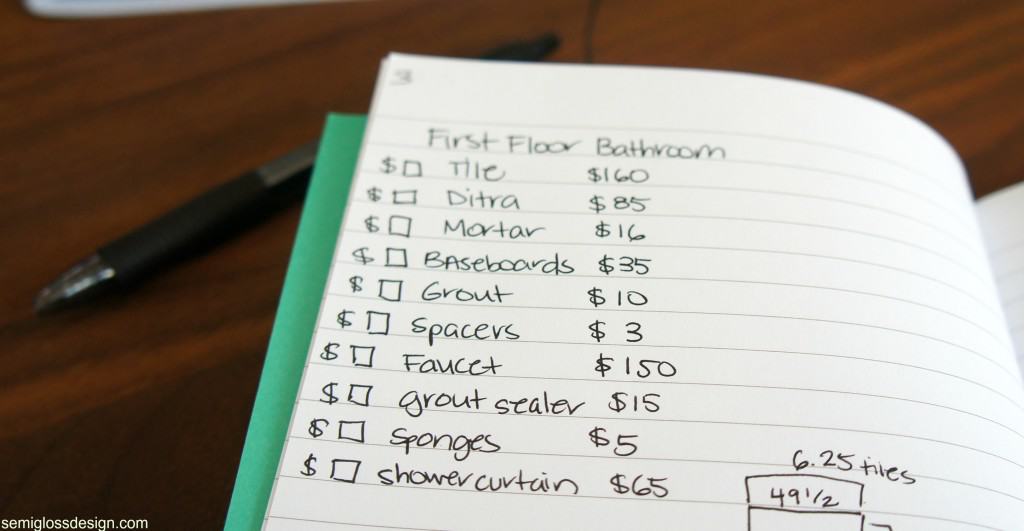 3
First Floor Bathroom
$ Tile $160
$ Ditra $85
$ Mortar $16
$ BAseboards $35
$ Grout $10
$ Spacers $3
$ Faucet $150
$ grout sealer $15
$ Sponges $5
$ shower curtain $65
6.25 tiles
49 1/2
semiglossdesign.com